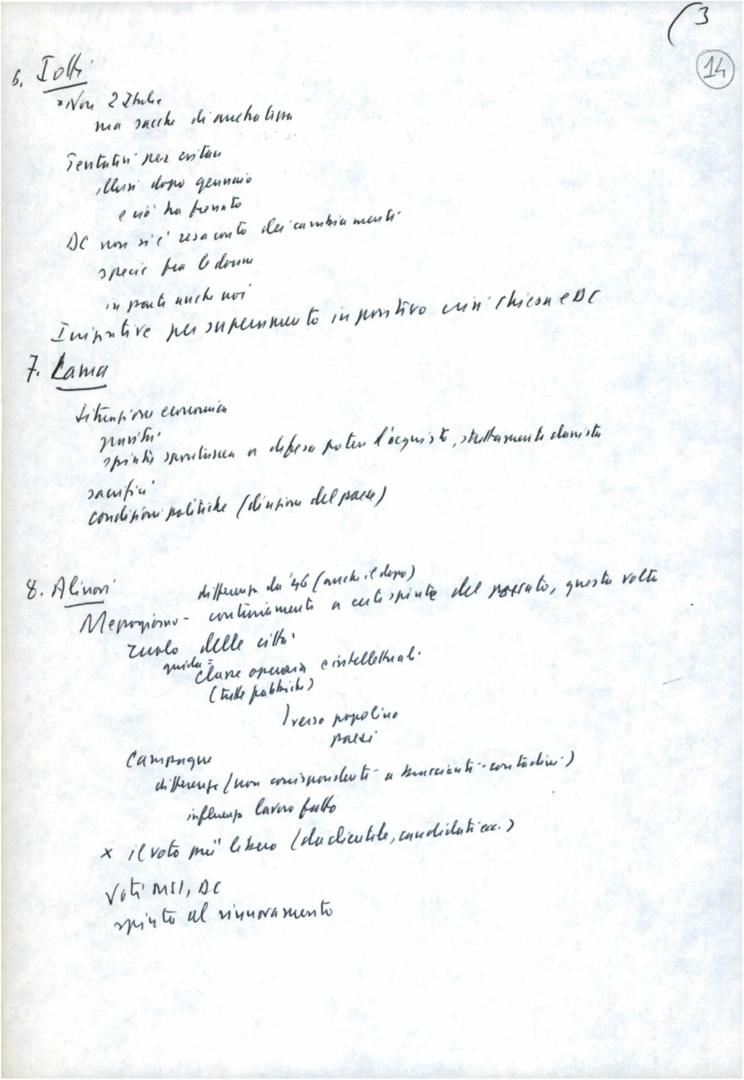 (3
14
6. Iotti
* Non 2 Italie
ma sacche di arretratezza
Tentativi per evitare
illusi dopo gennaio
e ciò ha frenato
DC non si è resa conto dei cambiamenti
specie fra le donne
in parte anche noi
Iniziative per superamento in positivo crisi chiesa e DC
7. Lama
Situazione economica
gravità
spinta spontanea a difesa potere d'acquisto, strettamente
sacrifici
condizioni politiche (divisione del paese)
8. Alinovi
differenza da '46 (anche il dopo)
Mezzogiorno - contrariamente a certe spinte del passato, questa volta
ruolo delle città
guida = classe operaia e intellettuali
(tutte fabbriche)
verso popolino
paesi
Campagne
differenze (non corrispondenti a braccianti - contadini)
influenza lavoro fatto
x il voto più libero (da clientele, candidati ecc.)
Voti MSI, DC
spinta al rinnovamento